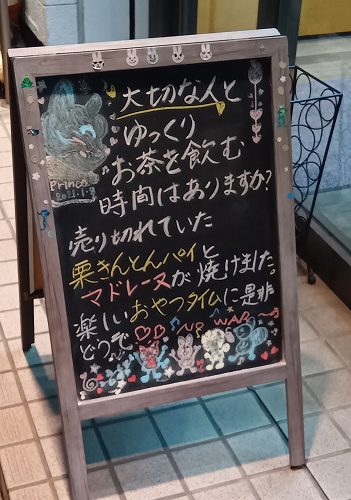 大切な人と
ゆっくり
お茶を飲む
時間はありますか?
Prince
売り切れていた
栗きんとんパイと
マドレーヌが焼けました。
楽しいおやつタイムに是非
どうぞ